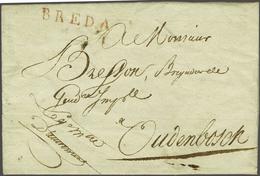 BREDA
A Monsieur
Bresson, Brigadier de
Gend^ie Imp^le
a
Oudenbosch